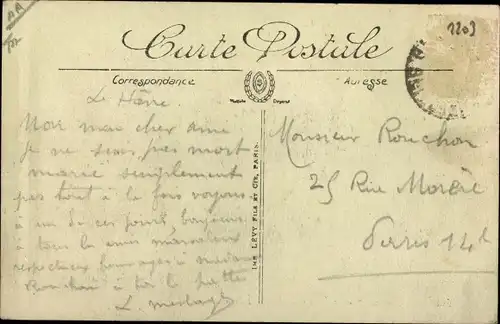 1203
AA
Carte Postale
Correspondance
Adresse
Modèle Déposé
Le Hâvre
Non mon cher ami
je ne suis pas mort
marié simplement
pas tout à la fois voyons
à un de ces jours, bonjour
à tous les amis
respectueux hommages à madame
Rouchon à toi la patte
L.
IMP. LÉVY FILS ET CIE, PARIS.
Monsieur Rouchon
25 Rue Morère
Paris 14è